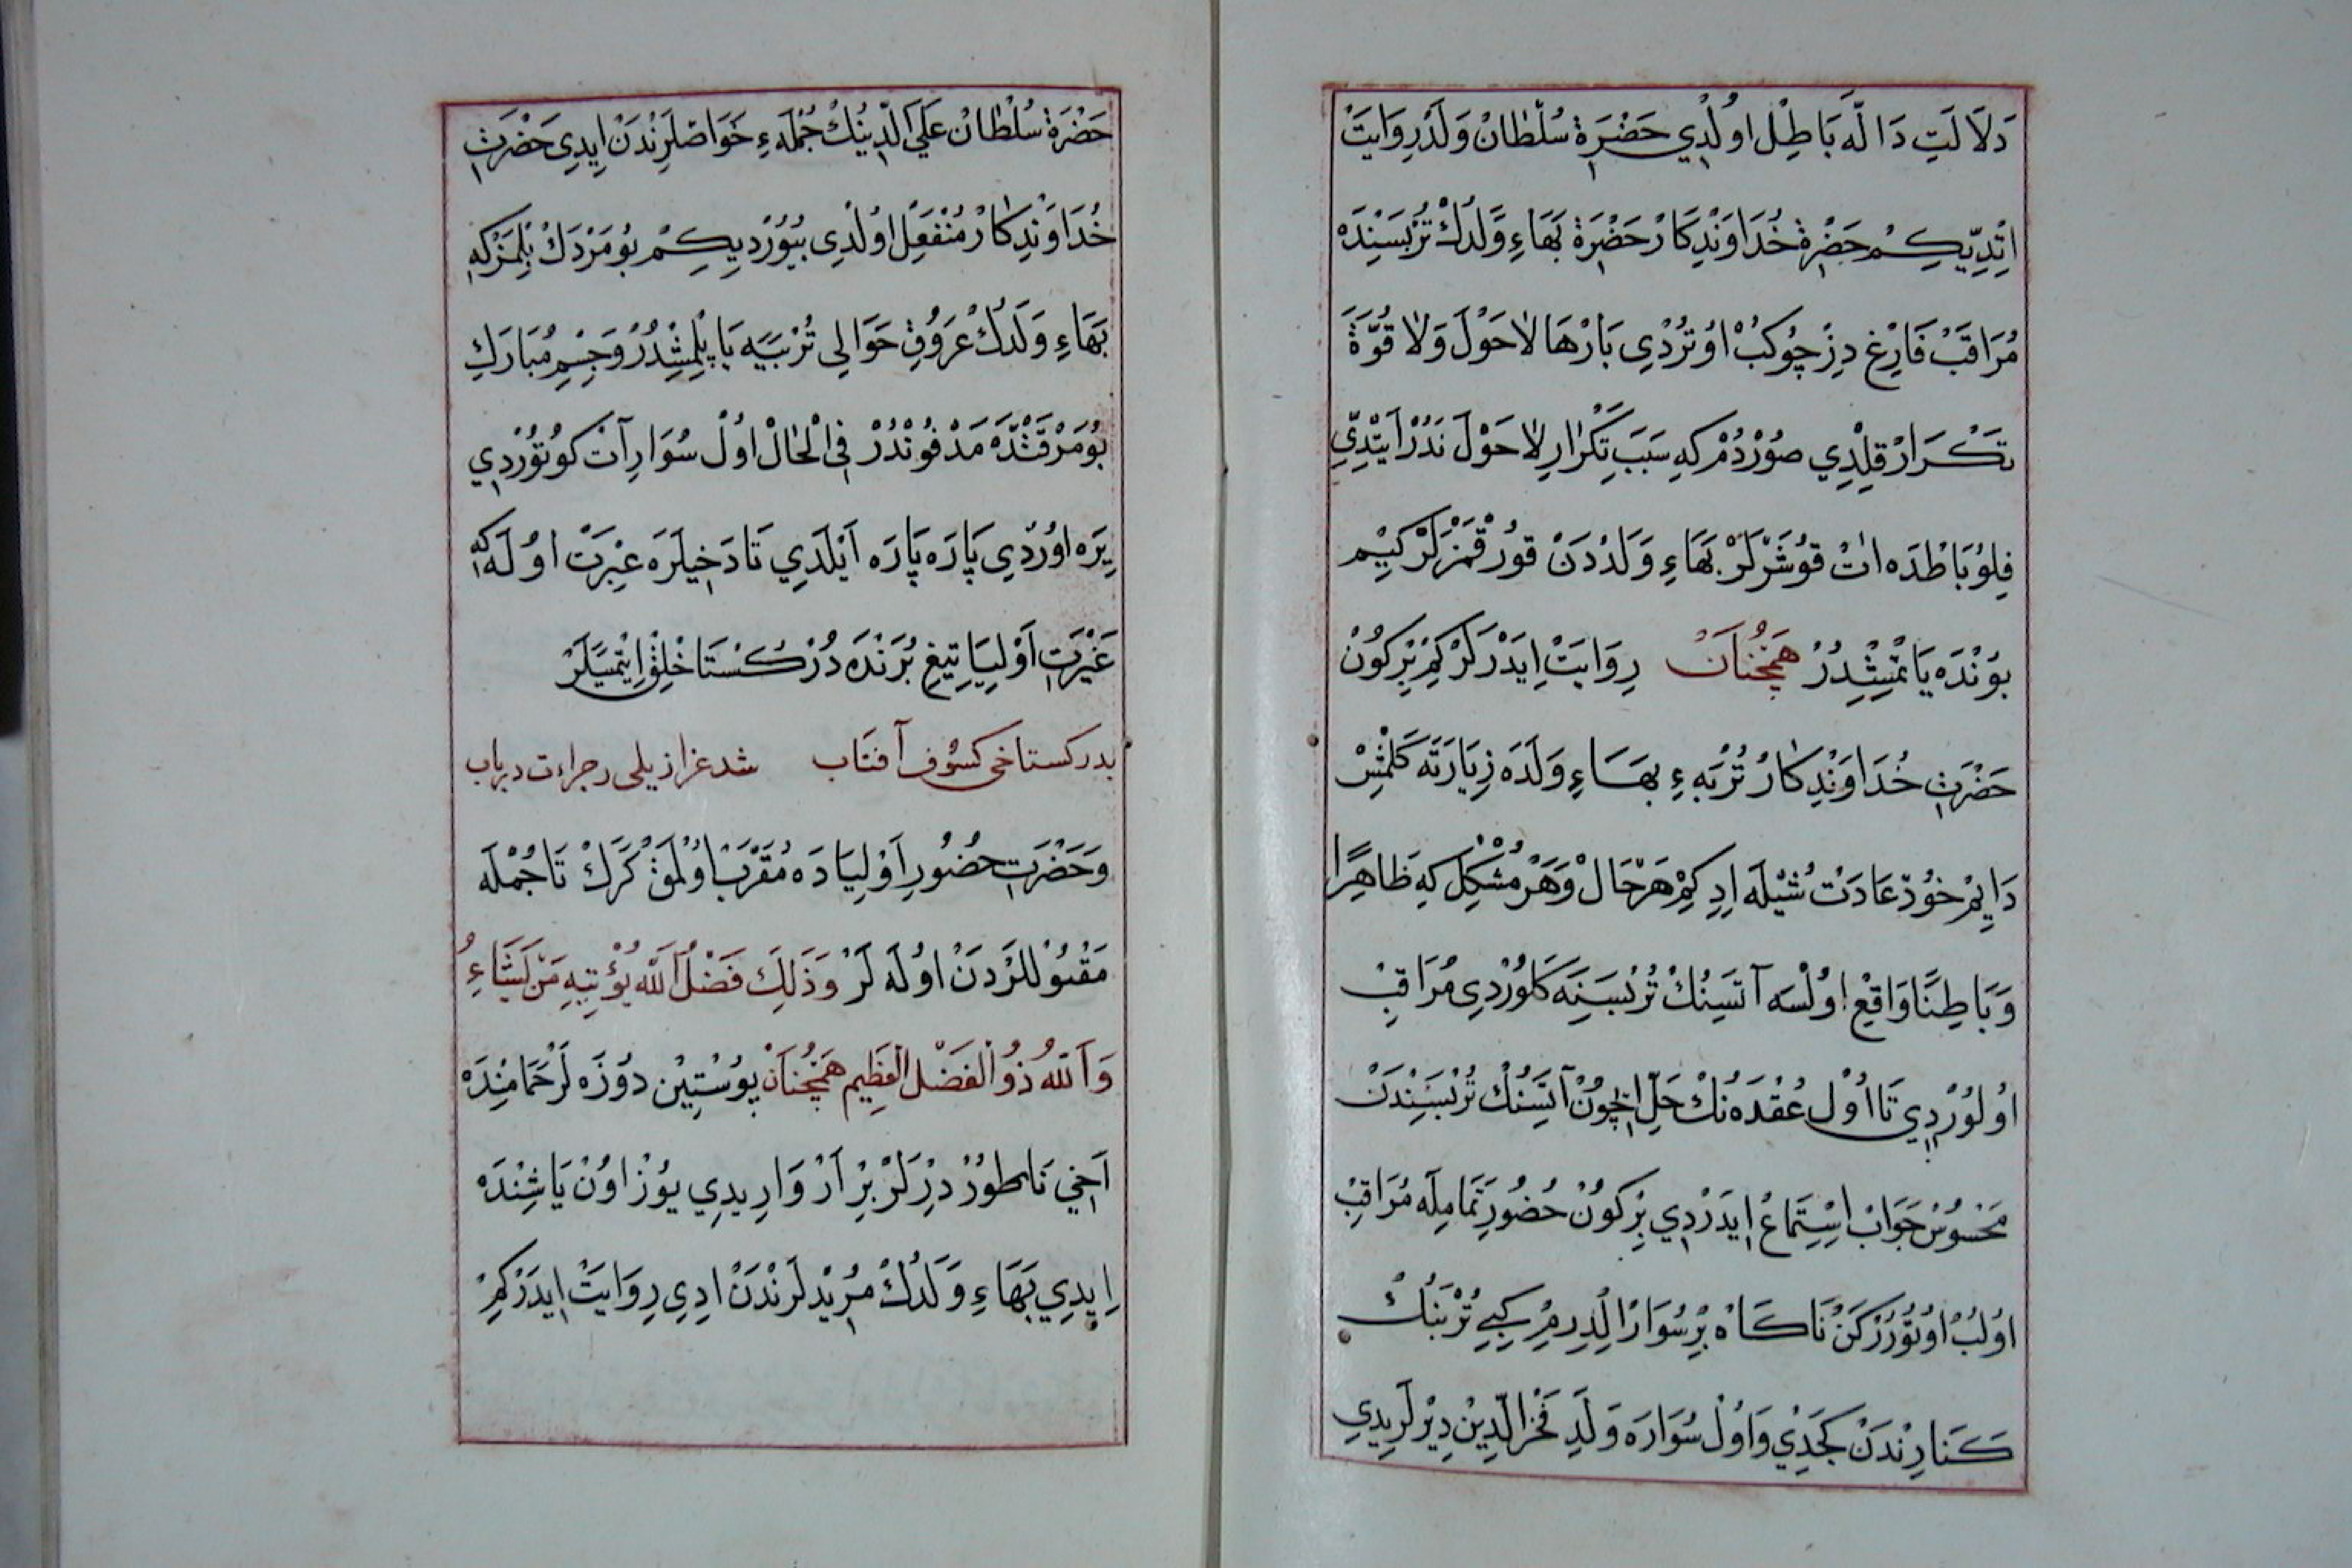 دَلَالَتِ دَالَّه بَاطِلْ اوُلْدِي حَضْرَةِ سُلْطَانْ وَلَدْ رِوَايَتْ
اتِدِيكِمْ حَضْرَةِ خُدَاوَنْدِكَارْ حَضْرَةِ بَهَاءِ وَلَدُكْ تُرْبَسِنْدَه
مُرَاقَبْ فَارِغْ دِزْ چُوكُبْ اوُتُرْدِى بَارْهَا لَاحَوْلَ وَلَا قُوَّةَ
تَكْرَارْ قِلْدِي صُوْرْدُمْ كِه سَبَبِ تَكْرَارِ لَاحَوْلَ نَدُرْ اَيْتِدِّي
فِلُوبَاطْدَه اتْ قوُشَرْلَرْ بَهَاءِ وَلَدْدَنْ قوُرْقْمَزْلَرْ كِيْم
بوُنْدَه يَاتْمِشْدُرْ هَمْچُنَانْ رِوَايَتْ اِيدَرْلَرْ كِمْ بِرْكوُنْ
حَضْرَتِ خُدَاوَنْدِكَارْ تُرْبَهءِ بَهَاءِ وَلَدَه زِيَارَتَه كَلْمِشْ
دَايِمْ خوُدْ عَادَتْ شُيْلَه اِدِ كِمْ هَرْ حَالْ وَهَرْ مُشْكِلْ كِه ظَاهِرًا
وَبَاطِنًا وَاقِعْ اوُلْسَه آتَسِنُكْ تُرْبَسِنَه كَلوُرْدِى مُرَاقِبْ
اوُلوُرْدِي تَا اوُلْ عُقْدَه نُكْ حَلِّ اِچوُنْ آتَسِنُكْ تُرْبَسِنْدَنْ
مَحْسوُسْ جَوَابْ اِسْتِمَاعْ اِيدَرْدِي بِرْكوُنْ حُضُورِ تَمَامِلَه مُرَاقِبْ
اوُلُبْ اوُتُوْرُرْكَنْ نَاكَاهْ بِرْ سُوَارْ اِلْدِرِمْ كِبِي تُرْبَنُكْ
كَنَارِنْدَنْ كَجَدِي وَاوُلْ سُوَارَه وَلَدِ فَخْرُ الدِّينْ دِيْرْلَرِيدِي
حَضْرَةِ سُلْطَانْ عَلَيَ الدِّينُكْ جُمْلَهءِ خَوَاصْلَرِنْدَنْ اِيدِى حَضْرَتِ
خُدَاوَنْدِكَارْ مُنْفَعِلْ اوُلْدِى بُيوُرْدِيكِمْ بوُ مَرْدَكْ بِلْمَزْ كِه
بَهَاءِ وَلَدُكْ عُرُوقِ حَوَالِى تُرْبَيَه يَاپِلْمِشْدُرْ وَجِسْمِ مُبَارَكِ
بوُ مَرْقَدْدَه مَدْفوُنْدُرْ فِى الْحَالْ اوُلْ سُوَارِ آتْ كوُتوُرْدِي
يِرَه اوُرْدِي پَارَه پَارَه اَيْلَدِي تَا دَخِيلَرَه عِبْرَتْ اوُلَه كِه
غَيْرَتِ اَوْلِيَا تِيغِ بُرَنْدَه دُرْ كُسْتَاخْلِقْ اِتْمِيَلَرْ
بدز كستاخى كسوف آفتاب شد عزازيلى ز جراءت رد باب
وَحَضْرَتِ حُضُورِ اَوْلِيَادَه مُقَرَّبْ اوُلْمَقْ كَرَكْ تَا جُمْلَه
مَقْبوُللَرْدَنْ اوُلَه لَرْ وَذَلِكَ فَضْلُ اللّٰه يُؤْتِيهِ مَنْ يَشَاءُ
وَاللّٰهُ ذُو الْفَضْلِ الْعَظِيمِ هَمْچُنَانْ پوُسْتِيْن دوُزَه لَرْ حَمَامِنْدَه
اَخِي نَاطوُرْ دِرْلَرْ بِرْ اَرْ وَارِيدِي يوُزْ اوُنْ يَاشِنْدَه
اِيدِي بَهَاءِ وَلَدُكْ مُرِيْدلَرِنْدَنْ ادِى رِوَايَتْ اِيدَرْكِمْ